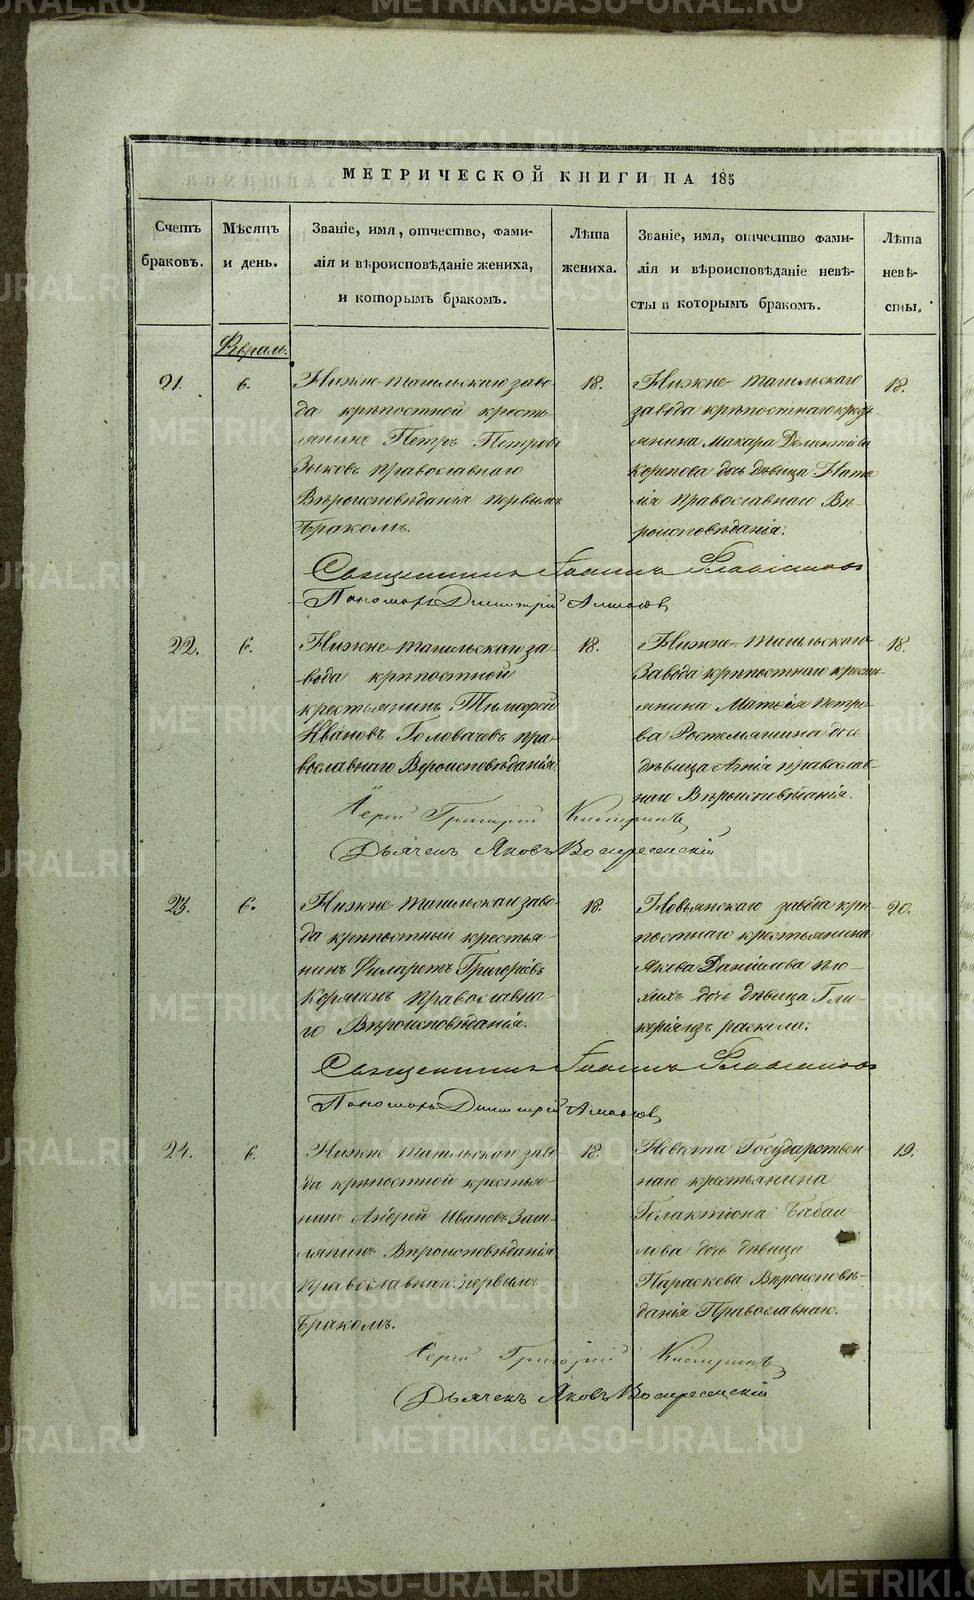 МЕТРИЧЕСКОЙ КНИГИ НА 185
Счетъ браковъ.
Мѣсяцъ и день.
Званіе, имя, отчество, фами-
лія и вѣроисповѣданіе жениха,
и которымъ бракомъ.
Лѣта
жениха.
Званіе, имя, отчество фами-
лія и вѣроисповѣданіе невѣ-
сты и которымъ бракомъ.
Лѣта
невѣ-
сты.
Феврал.
21.
6.
Нижне-тагильскаго заво-
да крѣпостной кресть-
янинъ Петръ Петровъ
Зыковъ православнаго
Вѣроисповѣданія первымъ
бракомъ.
18.
Нижне-тагильскаго
завода крѣпостнаго кресть
янина Макара
дочь дѣвица Ната
лія православнаго Вѣ-
роисповѣданія.
18.
Священникъ Іоаннъ Флавіановъ
Пономарь Димитрій
22.
6.
Нижне-тагильскаго за-
вода крѣпостной
крестьянинъ Тимофей
Ивановъ Головачевъ пра-
вославнаго Вероисповѣданія.
18.
Нижне-тагильскаго
Завода крѣпостнаго кресть-
янина Матвѣя Петро-
ва дочь
дѣвица Агнія православ-
наго Вѣроисповѣданія.
18.
Іерей Григорій
Дьячекъ Яковъ Воскресенскій
23.
6.
Нижне-тагильскаго заво-
да крѣпостный крестья-
нинъ Филаретъ Григорьевъ
православна-
го Вѣроисповѣданія.
18.
Невьянскаго завода крѣ-
постнаго крестьянина
Якова Даніилова Пло-
хихъ дочь дѣвица Гли-
керія изъ раскола.
20.
Священникъ Іоаннъ Флавіановъ
Пономарь Димитрій
24.
6.
Нижне-тагильскаго заво
да крѣпостной крестья-
нинъ Андрей Ивановъ
Вѣроисповѣданія
православнаго первымъ
бракомъ.
18.
Невѣста Государствен-
наго крестьянина
Галактіона Бабаи-
лова дочь дѣвица
Параскева Вѣроисповѣ-
данія Православнаго.
19.
Іерей Григорій
Дьячекъ Яковъ Воскресенскій
METRIKI.GASO-URAL.RU